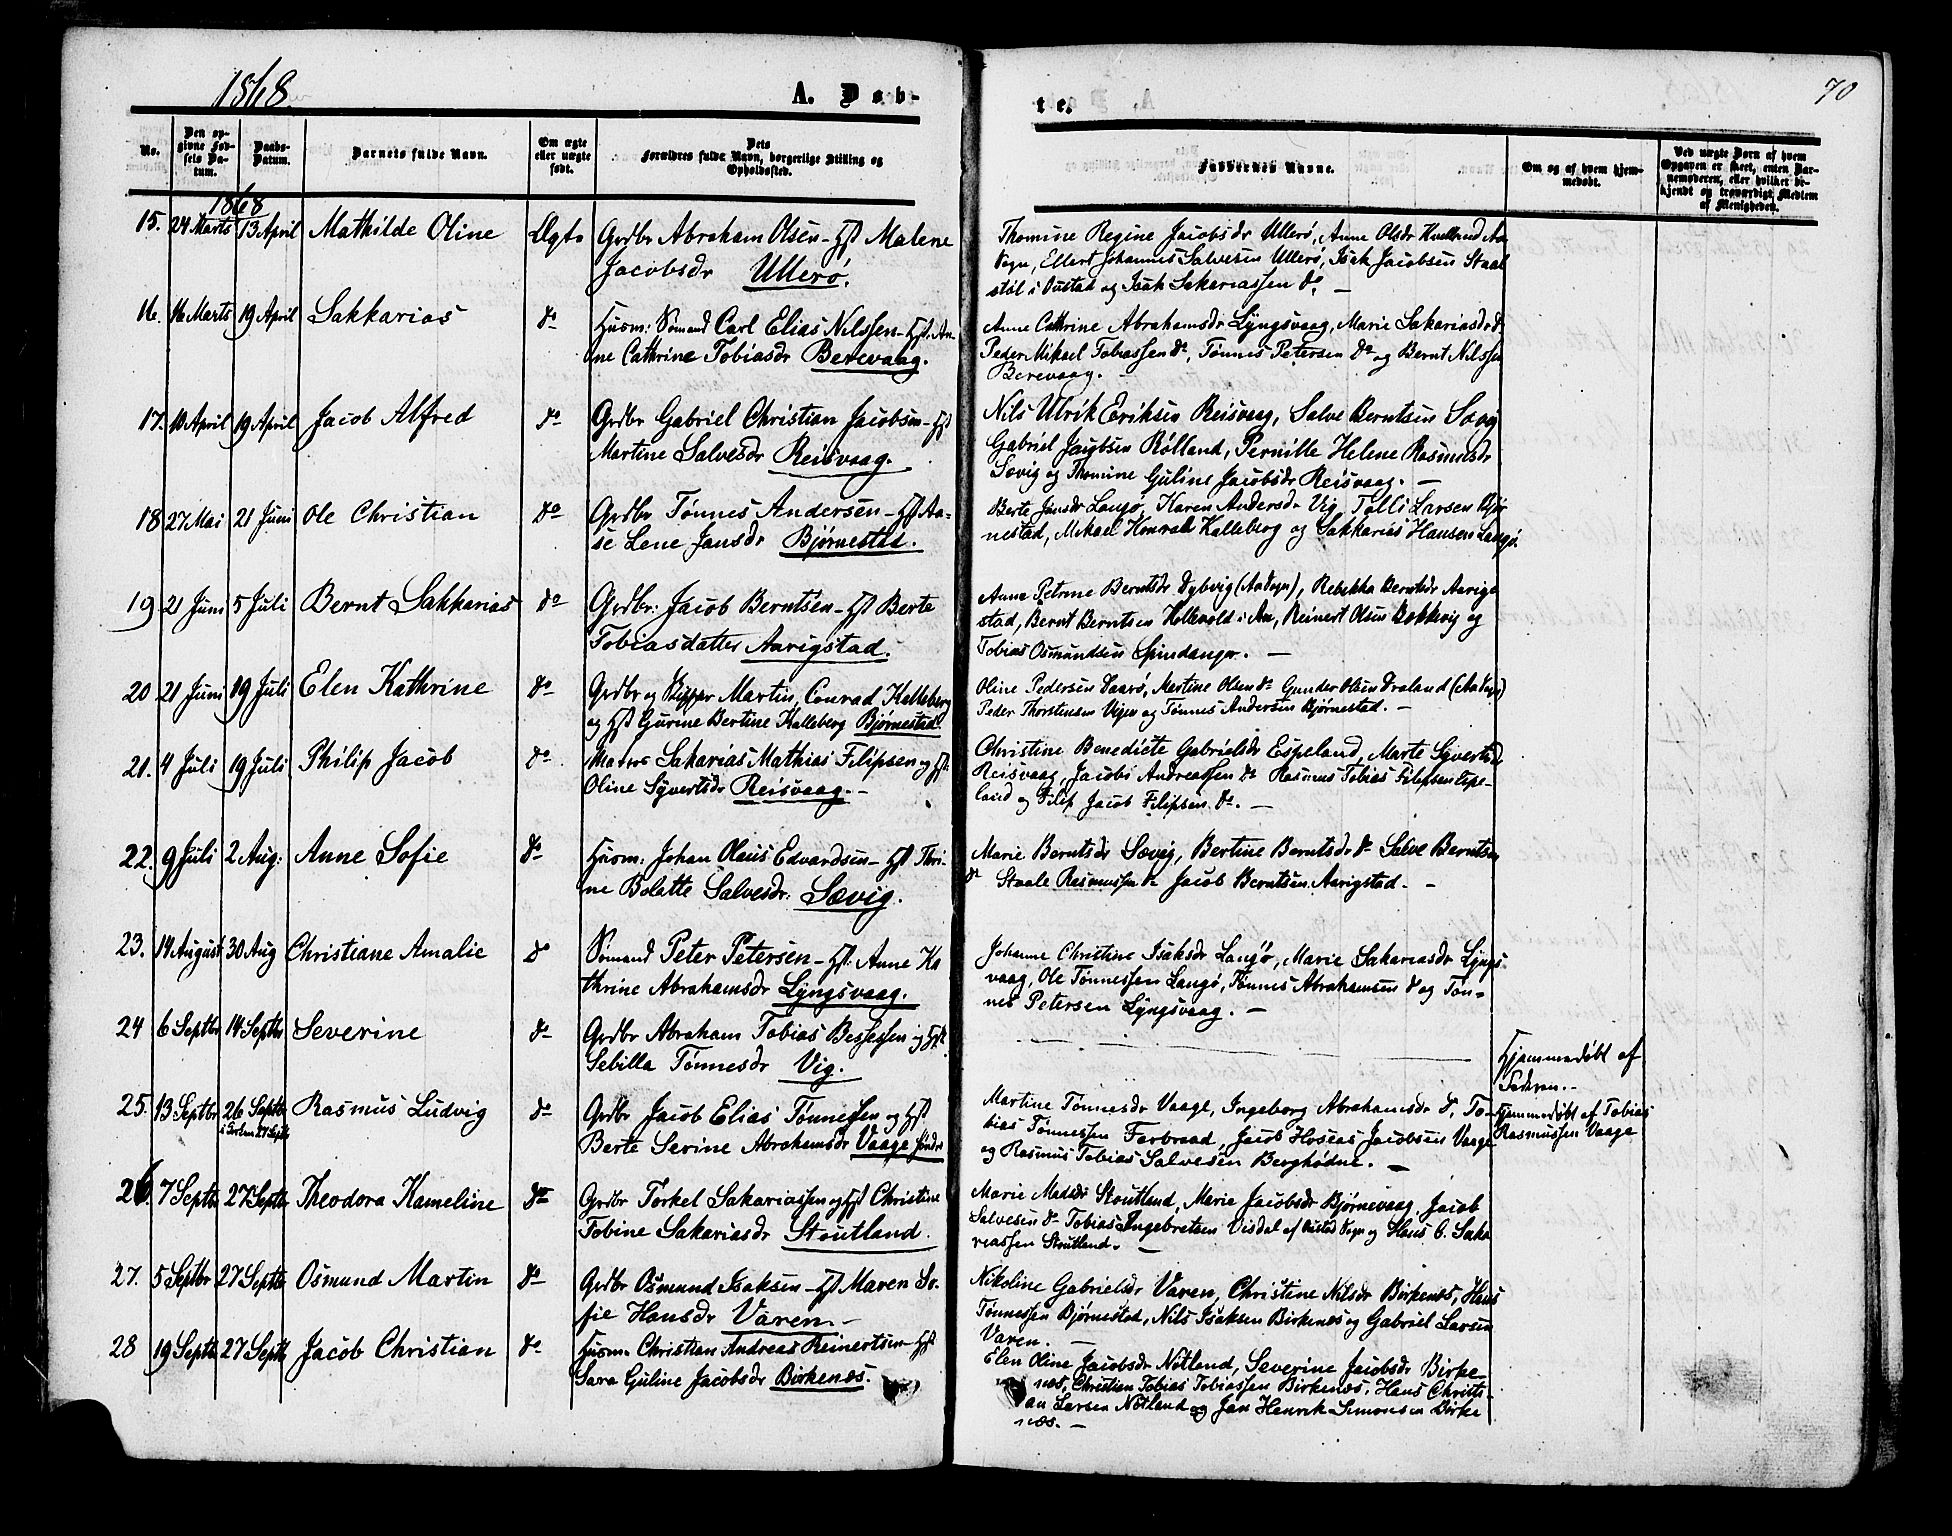 1868
A. Døb-
te.
70
No.
Den op-
givne Fød-
sels Da-
tum.
Daabs-
Datum.
Barnets fulde Navn.
Om ægte
eller uægte
født.
Dets
Forældres fulde Navn, borgerlige Stilling og
Opholdssted.
Faddernes Navne.
Om og af hvem hjem-
medøbt.
Ved uægte Børn af hvem
Opgaven er skeet, enten Bar-
nemoderen, eller hvilket be-
kjendt og troværdigt Medlem
af Menigheden.
1868
15. 24 Marts 13 April Mathilde Oline Ægte Grdbr Abraham Olsen - Hst Malene
Jacobsdr Ullerø.
Thomine Regine Jacobsdr Ullerø, Anne Olsdr
Sogn, Ellert Johannes Salvesen Ullerø, Isak Jacobsen
i Oustad og Isak Sakariassen do. —
16. 16 Marts 19 April Sakkarias do Husm: Sømand Carl Elias Nilssen - Hst. An-
ne Cathrine Tobiasdr Berevaag.
Anne Cathrine Abrahamsdr Lyngsvaag, Marie Sakariasdr do
Peder Mikael Tobiassen do, Tønnes Petersen do og Bernt Nilssen
Berevaag. —
17. 10 April 19 April Jacob Alfred do Grdbr Gabriel Christian Jacobsen - Hst
Martine Salvesdr Reisvaag.
Nils Ulrik Eriksen Reisvaag, Salve Berntsen Sævig
Gabriel Jacobsen Rölland, Pernille Helene Rasmusdr
Sævig og Thomine Guline Jacobsdr Reisvaag. —
18 27 Mai 21 Juni Ole Christian do Grdbr Tønnes Andersen - Hst Aa-
se Lene Jansdr Bjørnestad.
Berte Jansdr Langø, Karen Andersdr Vig, Tolli Larsen Bjør-
nestad, Mikael Konrad Kalleberg og Sakkarias Hansen Langø.
19 21 Juni 5 Juli Bernt Sakkarias do Grdbr: Jacob Berntsen - Hst Berte
Tobiasdatter Aarigstad.
Anne Petrine Berntsdr Dybvig (Aa Sogn), Rebekka Berntsdr Aarig-
stad, Bernt Berntsen Hollevold i Aa, Reinert Olsen Bækkevig og
Tobias Osmundsen Spindanger. —
20 21 Juni 19 Juli Elen Kathrine do Grdbr og Skipper Martin Conrad Kalleberg
og Hst Gurine Bertine Kalleberg Bjørnestad
Oline Pedersen Saarø, Martine Olsen do Gunder Olsen Draland (Aa Sogn)
Peder Thorstensen Vigen og Tønnes Andersen Bjørnestad. —
21. 4 Juli 19 Juli Philip Jacob do Sakarias Mathias Filipsen og Hst:
Oline Syvertsdr Reisvaag. -
Christine Benedicte Gabrielsdr Espeland, Marte Syvertsdr
Reisvaag, Jacobs Andreassen do Rasmus Tobias Filipsen Espe-
land og Filip Jacob Filipsen do. —
22. 9 Juli 2 Aug: Anne Sofie do Husm: Johan Olaus Edvardsen - Hst Thri-
ne Bolatte Salvesdr: Sævig.
Marie Berntsdr Sævig, Bertine Berntsdr do Salve Berntsen
do Staale Rasmussen do Jacob Berntsen Aarigstad. -
23. 14 August 30 Aug Christiane Amalie do Sømand Peter Petersen - Hst: Anne Ka
thrine Abrahamsdr Lyngsvaag.
Johanne Christine Isaksdr Langø, Marie Sakariasdr Lyngs-
vaag, Ole Tønnessen Langø, Tønnes Abrahamsen do og Tøn-
nes Petersen Lyngsvaag. —
24 6 Septbr 14 Septbr Severine do Grdbr Abraham Tobias Bessesen og Hst
Sebilla Tønnesdr Vig.
Hjemmedøbt af
Faderen. -
25. 13 Septbr 26 Septbr
Rasmus Ludvig do Grdbr Jacob Elias Tønnessen og Hst
Berte Serine Abrahamsdr Vaage søndr
Martine Tønnesdr Vaage, Ingeborg Abrahamsdr do, To-
bias Tønnessen Farbraad, Jacob Hoseas Jacobsen Vaage
og Rasmus Tobias Salvesen Berghødne. —
Hjemmedøbt af Tobias
Rasmussen Vaage
26. 7 Septbr 27 Septbr Theodora Kameline do Grdbr Torkel Sakariassen og Hst Christine
Tobine Sakariasdr Stoutland.
Marie Madsdr Stoutland, Marie Jacobsdr Bjørnevaag, Jacob
Salvesen do Tobias Ingebretsen Visdal af Oustad Sogn og Hans C. Saka
riassen Stoutland. —
27. 5 Septbr 27 Septbr Osmund Martin do Grdbr Osmund Isaksen - Hst Maren So-
fie Hansdr Varen. -
Nikoline Gabrielsdr Varen, Christine Nilsdr Birkenes, Hans
Tønnessen Bjørnestad, Nils Isaksen Birkenes og Gabriel Larsen
Varen. —
28 19 Septbr 27 Septbr Jacob Christian do Husm. Christian Andreas Reinertsen Hst
Sara Guline Jacobsdr Birkenes.
Elen Oline Jacobsdr Nøtland, Severine Jacobsdr Birke-
næs, Christian Tobias Tobiassen Birkenæs, Hans Christi-
an Larsen Nøtland og Jan Henrik Simonsen Birke
næs. —